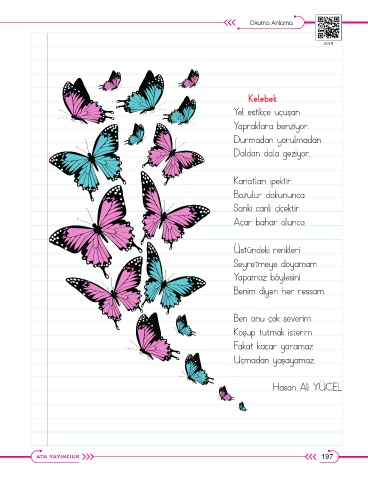 Okuma Anlama
Kelebek
Yel estikçe uçuşan
Yapraklara benziyor.
Durmadan yorulmadan
Daldan dala geziyor.
Kanatları ipektir.
Bozulur dokununca
Sanki canlı çiçektir
Açar bahar olunca.
Üstündeki renkleri
Seyretmeye doyamam.
Yapamaz böylesini
Benim diyen her ressam.
Ben onu çok severim
Koşup tutmak isterim
Fakat kaçar yaramaz
Uçmadan yaşayamaz.
Hasan Ali YÜCEL
ATA YAYINCILIK
197